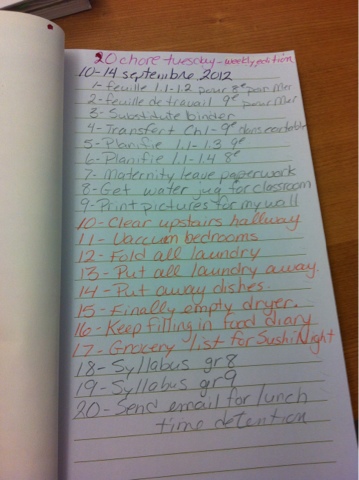 20 chore tuesday - weekly edition
10-14 septembre 2012
1- feuille 1.1-1.2 pour 8e pour Mer
2- feuille de travail 9e pour Mer
3- Substitute binder
4- Transfert Ch1 - 9e dans
5- Planifie 1.1-1.3 9e
6- Planifie 1.1-1.4 8e
7- Maternity leave paperwork
8- Get water jug for classroom
9- Print pictures for my wall
10- Clear upstairs hallway
11- Vaccum bedrooms
12- Fold all laundry
13- Put all laundry away.
14- Put away dishes.
15- Finally empty dryer.
16- Keep filling in food diary
17- Grocery list for Sushi Night
18- Syllabus gr 8
19- Syllabus gr 9
20- Send email for lunch
time detention